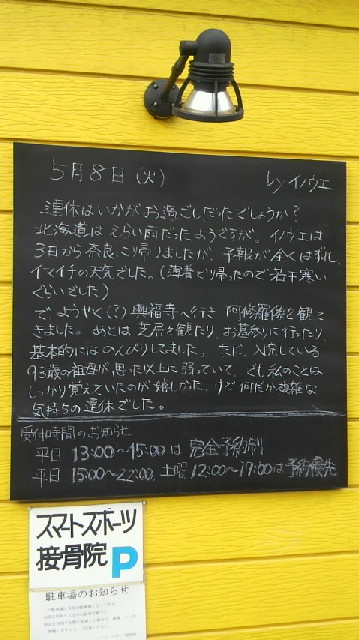 5月8日(火) byイノウエ
連休はいかがお過ごしだったでしょうか?
北海道はえらい雨だったようですが、イノウエは
3日から奈良に帰りましたが、予報が全くはずれ、
イマイチの天気でした。(薄着で帰ったので若干寒い
ぐらいでした)
で、ようやく(?)興福寺へ行き 阿修羅像を観て
きました。あとは芝居を観たり、お墓参りに行ったり、
基本的にはのんびりしてました。ただ、入院している
93歳の祖母が思った以上に弱っていて、でも私のことは
しっかり覚えていたのが嬉しかった、何だか複雑な
気持ちの連休でした。
受付時間のお知らせ
平日 13:00〜15:00は 完全予約制
平日 15:00〜22:00, 土曜 12:00〜19:00は予約優先
スマートスポーツ
接骨院 P
駐車場のお知らせ